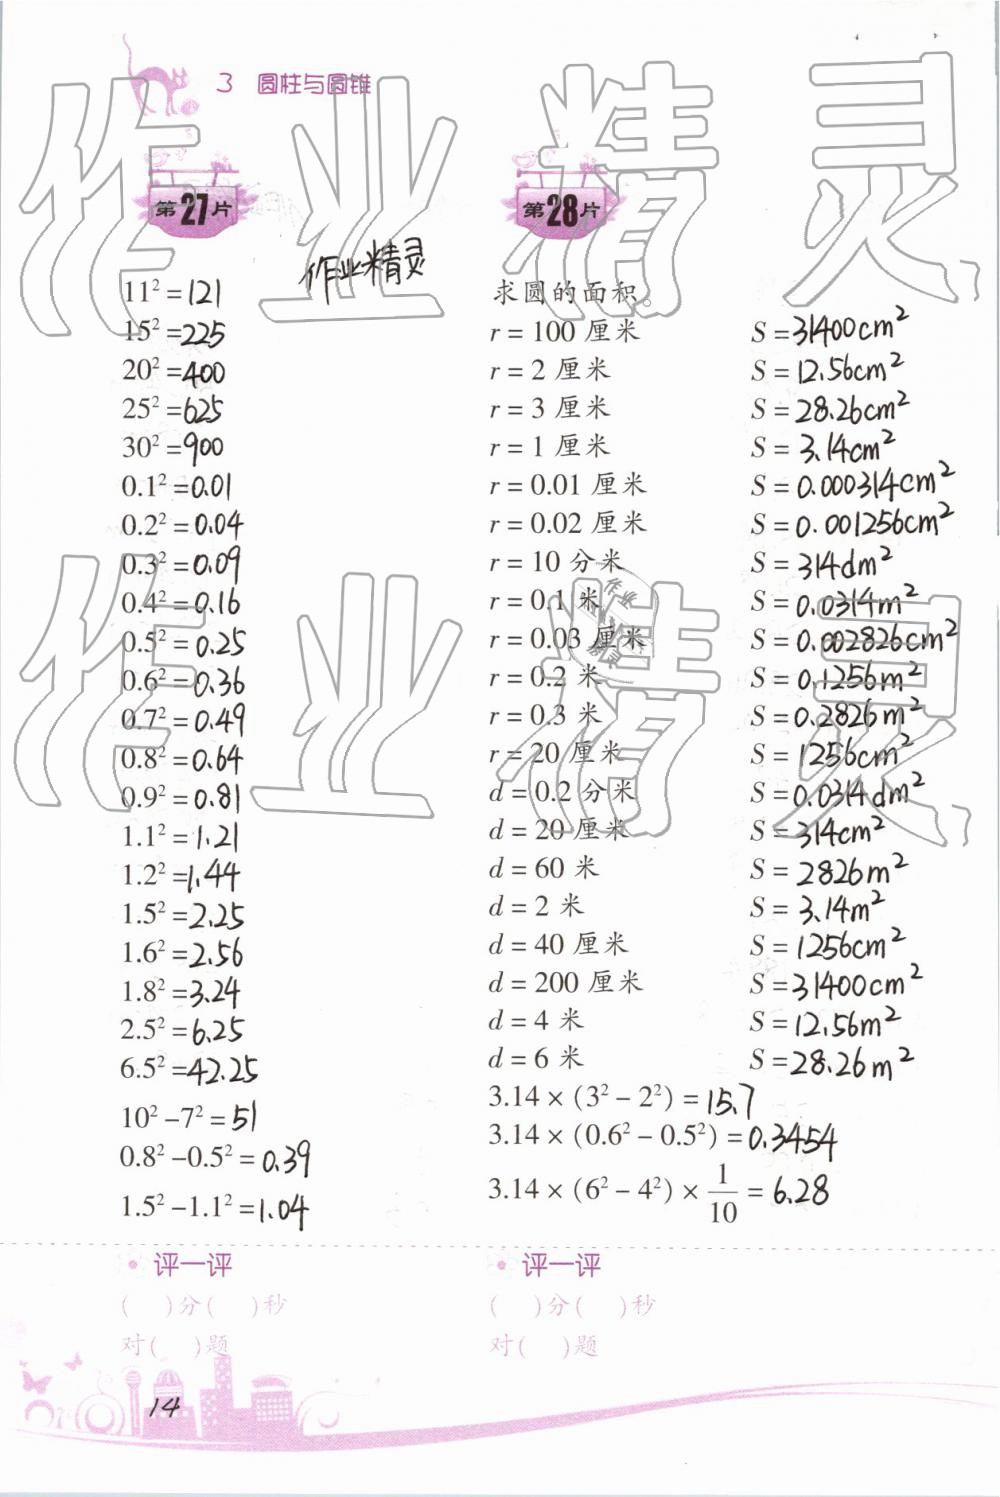 3 圆柱与圆锥
第27片
作业精灵
11² = 121
15² = 225
20² = 400
25² = 625
30² = 900
0.1² = 0.01
0.2² = 0.04
0.3² = 0.09
0.4² = 0.16
0.5² = 0.25
0.6² = 0.36
0.7² = 0.49
0.8² = 0.64
0.9² = 0.81
1.1² = 1.21
1.2² = 1.44
1.5² = 2.25
1.6² = 2.56
1.8² = 3.24
2.5² = 6.25
6.5² = 42.25
10² - 7² = 51
0.8² - 0.5² = 0.39
1.5² - 1.1² = 1.04
评一评
( )分( )秒
对( )题
第28片
求圆的面积。
r = 100 厘米 S = 31400cm²
r = 2 厘米 S = 12.56cm²
r = 3 厘米 S = 28.26cm²
r = 1 厘米 S = 3.14cm²
r = 0.01 厘米 S = 0.000314cm²
r = 0.02 厘米 S = 0.001256cm²
r = 10 分米 S = 314dm²
r = 0.1 米 S = 0.0314m²
r = 0.03 厘米 S = 0.002826cm²
r = 0.2 米 S = 0.1256m²
r = 0.3 米 S = 0.2826m²
r = 20 厘米 S = 1256cm²
d = 0.2 分米 S = 0.0314dm²
d = 20 厘米 S = 314cm²
d = 60 米 S = 2826m²
d = 2 米 S = 3.14m²
d = 40 厘米 S = 1256cm²
d = 200 厘米 S = 31400cm²
d = 4 米 S = 12.56m²
d = 6 米 S = 28.26m²
3.14 × (3² - 2²) = 15.7
3.14 × (0.6² - 0.5²) = 0.3454
3.14 × (6² - 4²) × 1/10 = 6.28
评一评
( )分( )秒
对( )题
14
作业精灵
作业精灵